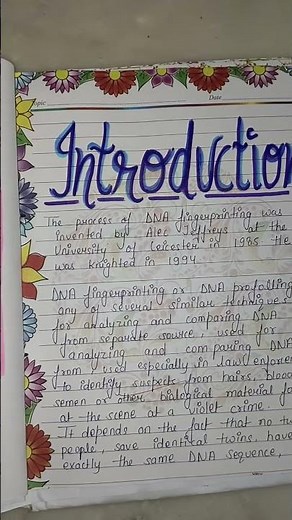 Topic
Date
Introduction
The process of DNA fingerprinting was
invented by Alec Jeffreys at the
University of Leicester in 1985 He
was knighted in 1994.
DNA fingerprinting or DNA profiling
any of several similar techniques
for analyzing and comparing DNA
from separate source, used for
analyzing and comparing DNA
from used especially in law enforce
to identify suspects from hairs, bloo
semen or other biological material fo
at the scene at a violet crime.
It depends on the fact that no tw
people, save identical twins, have
exactly the same DNA sequence,